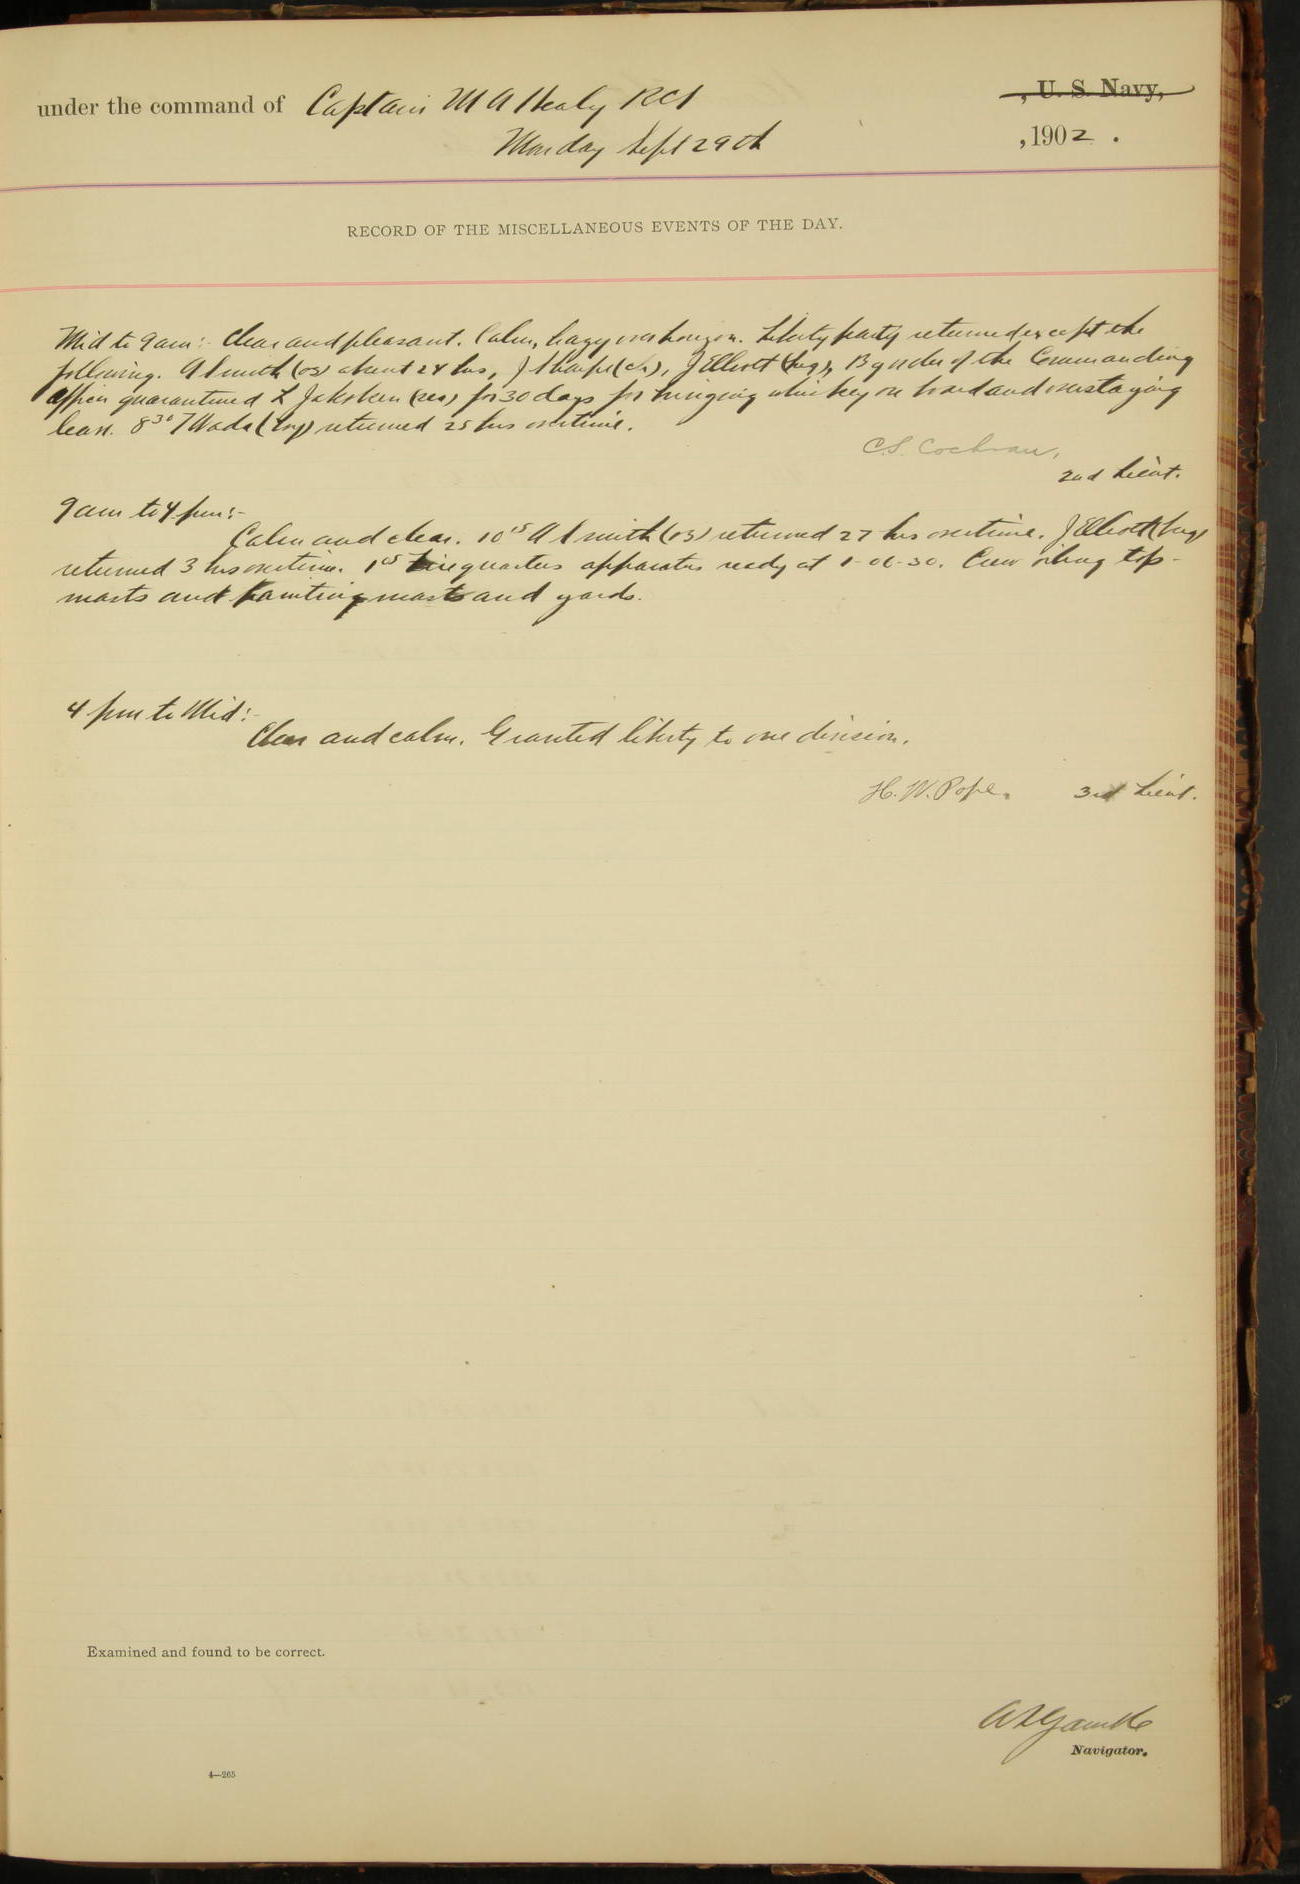 under the command of Captain M A Healy RCS , U. S. Navy,
Monday Sept 29th , 1902 .
RECORD OF THE MISCELLANEOUS EVENTS OF THE DAY.
Mid to 9am:- Clear and pleasant. Calm, hazy over horizon. Liberty party returned except the
following. A Smith (os) absent 24 hrs, J Sharpe (ch), J Elliott (bug), By order of the Commanding
officer quarantined L Jakobsen (sea) for 30 days for bringing whiskey on board and overstaying
leave. 8 30 T Wada (boy) returned 25 hrs overtime.
C.S. Cochran,
2nd Lieut.
9am to 4pm:-
Calm and clear. 10 15 A Smith (os) returned 27 hrs overtime. J Elliott (bug)
returned 3 hrs overtime. 1 05 Fire quarters apparatus ready at 1-06-30. Crew oiling top-
masts and painting masts and yards.
4 pm to Mid:-
Clear and calm. Granted liberty to one division.
H. W. Pope. 3rd Lieut.
Examined and found to be correct.
Navigator.
4—265